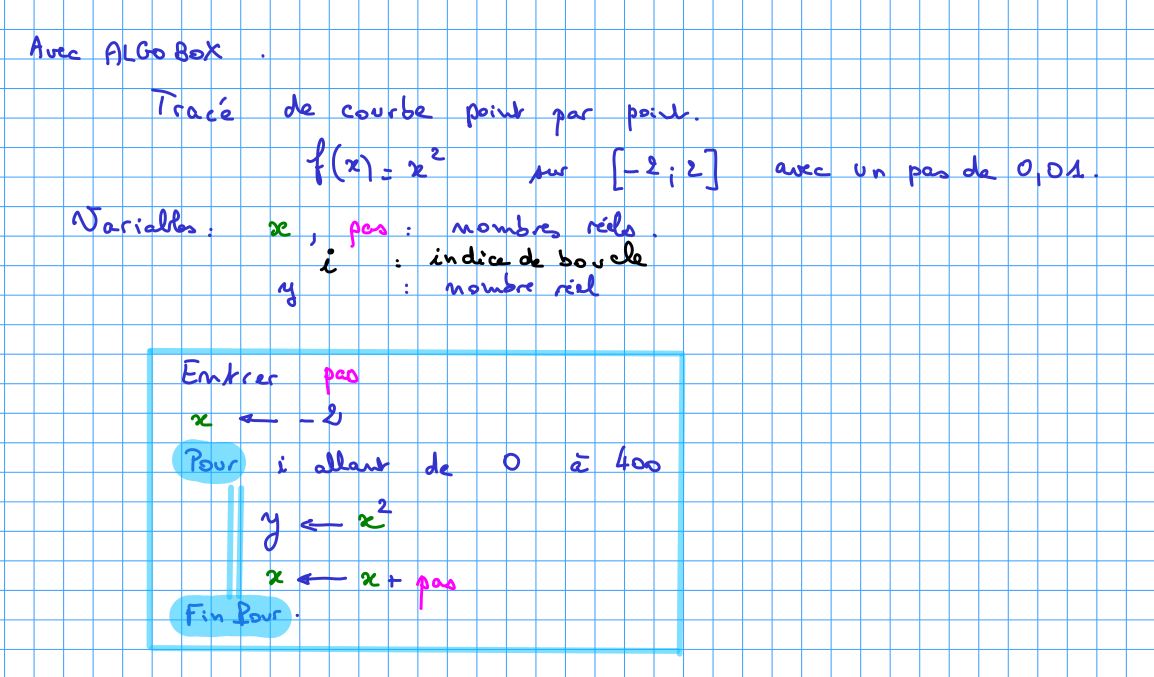 Avec ALGOBOX .
Tracé de courbe point par point.
f(x) = x² sur [-2 ; 2] avec un pas de 0,01.
Variables : x , pas : nombres réels.
i : indice de boucle
y : nombre réel
Entrer pas
x ← -2
Pour i allant de 0 à 400
y ← x²
x ← x + pas
Fin Pour.